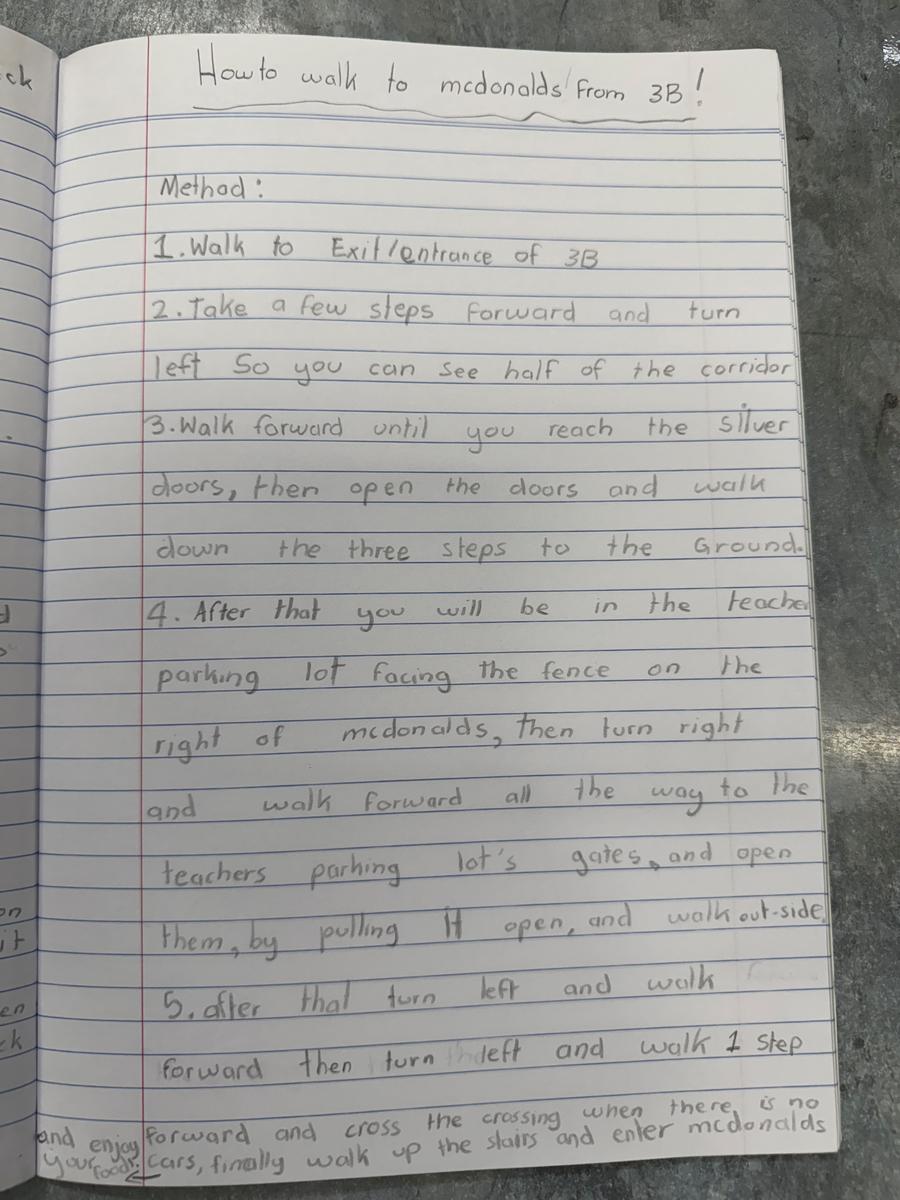 How to walk to mcdonalds from 3B!
Method:
1. Walk to Exit/entrance of 3B
2. Take a few steps forward and turn
left So you can see half of the corridor
3. Walk forward until you reach the silver
doors, then open the doors and walk
down the three steps to the Ground.
4. After that you will be in the teacher
parking lot facing the fence on the
right of mcdonalds, then turn right
and walk forward all the way to the
teachers parking lot's gates, and open
them, by pulling it open, and walk out-side.
5. after that turn left and walk
forward then turn left and walk 1 step
forward and cross the crossing when there is no
cars, finally walk up the stairs and enter mcdonalds
and enjoy
your food!
ck
on
it
en
ck